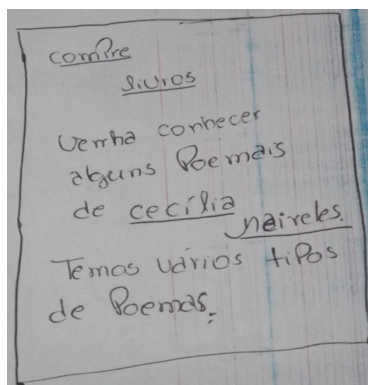 compre
livros
Venha conhecer
alguns Poemais
de cecília
naireles.
Temos vários tipos
de Poemas.